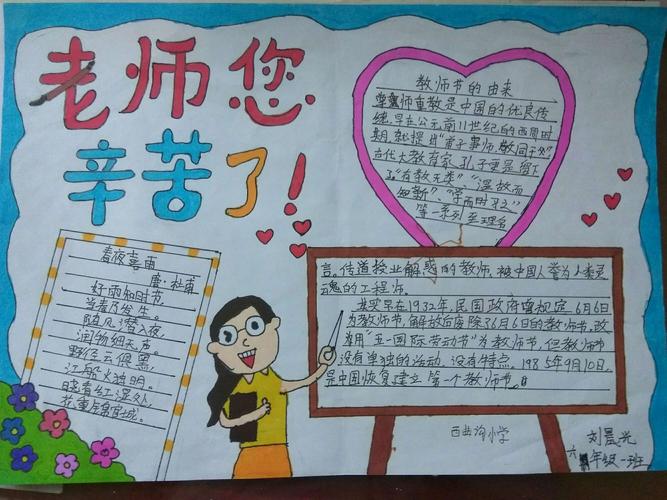 老师您
辛苦了！
教师节的由来
尊师重教是中国的优良传
统，早在公元前11世纪的西周时
期，就提出"弟子事师，敬同于父"
古代大教育家孔子更是留下
了"有教无类"、"温故而
知新"、"学而时习之"
等一系列至理名
言。传道授业解惑的教师，被中国人誉为人类灵
魂的工程师。
其实早在1932年，民国政府曾规定6月6日
为教师节，解放后废除了6月6日的教师节，改
为用"五一国际劳动节"为教师节，但教师节
没有单独的活动，没有特点。1985年9月10日，
是中国恢复建立第一个教师节。
春夜喜雨
唐·杜甫
好雨知时节，
当春乃发生。
随风潜入夜，
润物细无声。
野径云俱黑，
江船火独明。
晓看红湿处，
花重锦官城。
西曲沟小学
刘晨光
六年级一班